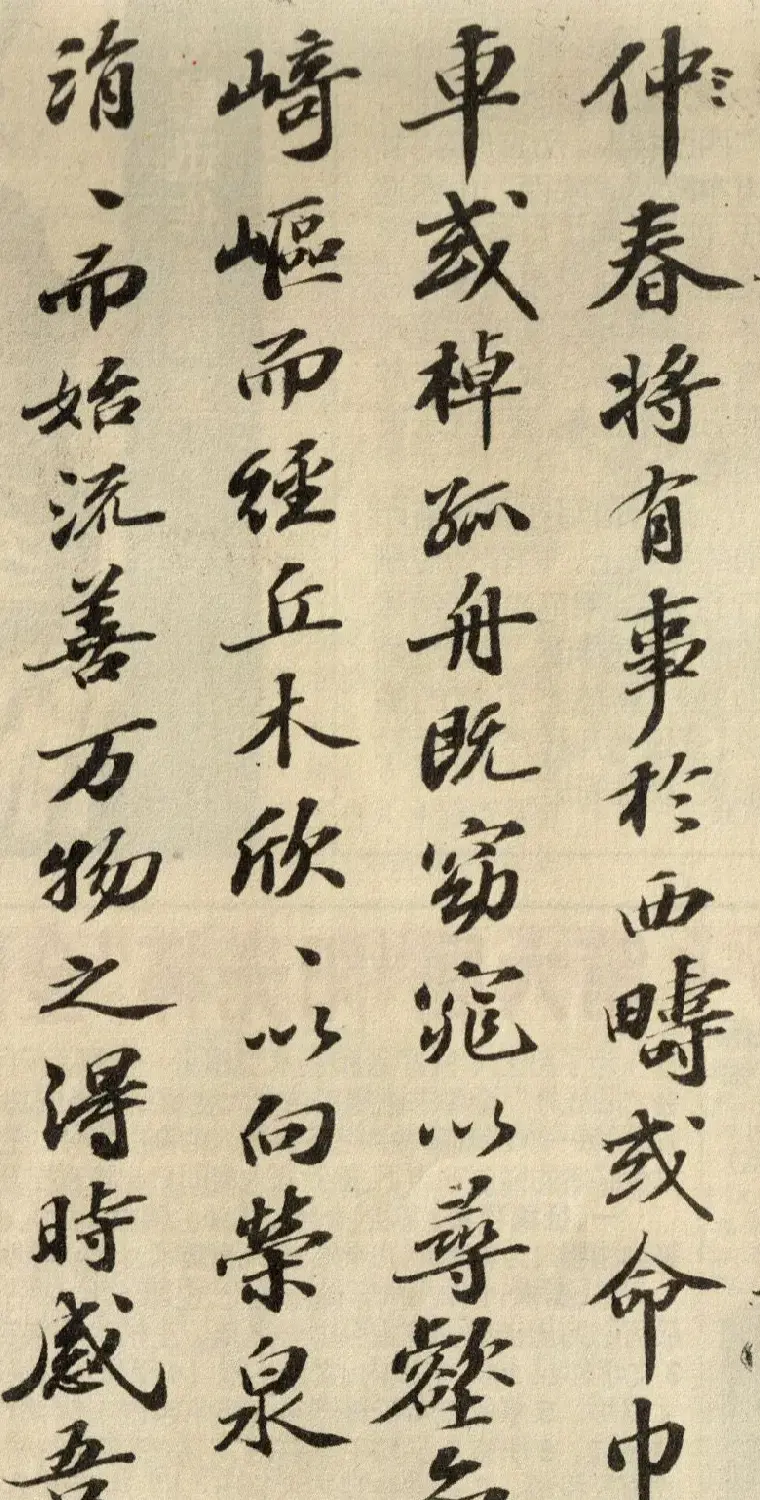 仲春将有事於西疇或命巾
車或棹孤舟既窈窕以尋壑亦
崎嶇而經丘木欣、以向榮泉
涓、而始流善万物之得時感吾